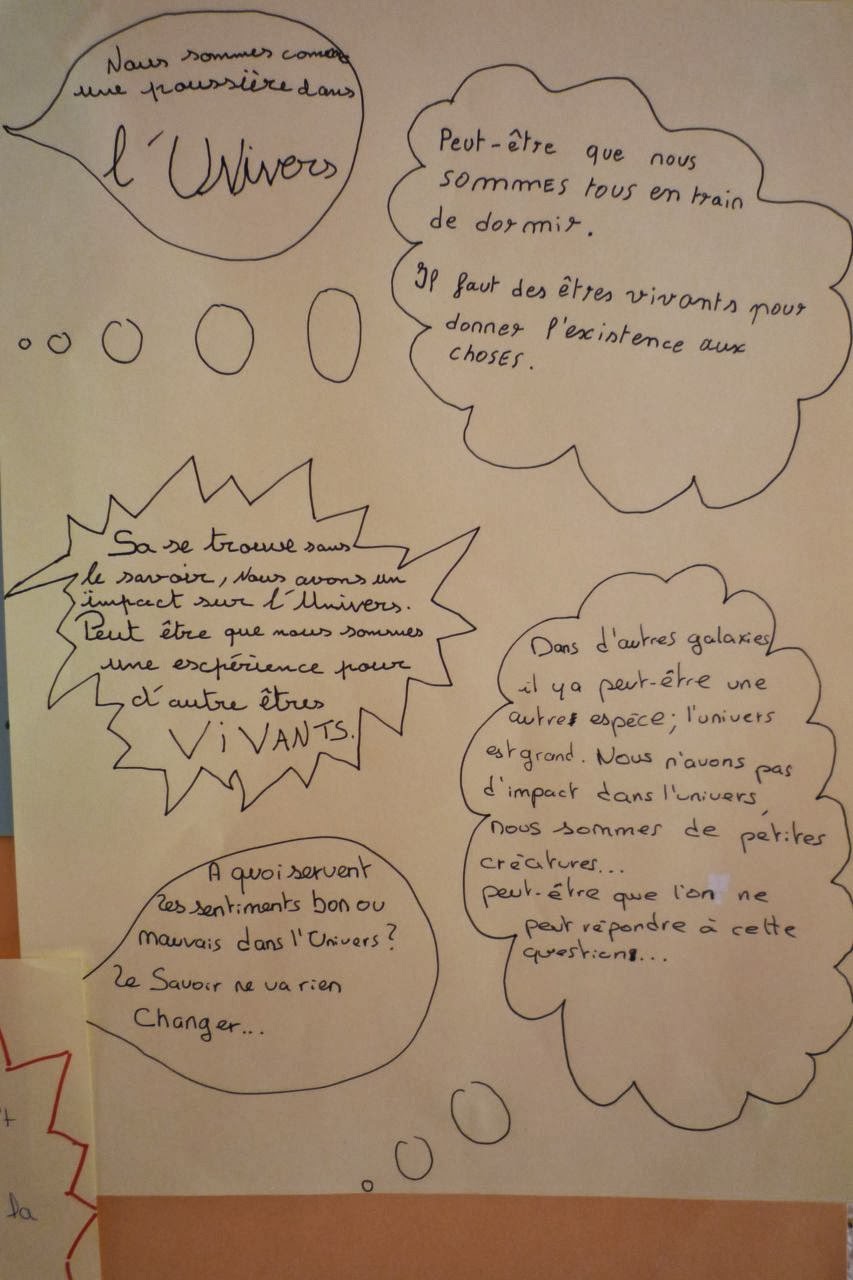 Nous sommes comme
une poussière dans
l'UNivers
Peut-être que nous
sommes tous en train
de dormir.
Il faut des êtres vivants pour
donner l'existence aux
choses.
Sa se trouve sans
le savoir, Nous avons un
impact sur l'Univers.
Peut être que nous sommes
une escpérience pour
d'autre êtres
ViVANTS.
Dans d'autres galaxies
il y a peut-être une
autres espèce; l'univers
est grand. Nous n'avons pas
d'impact dans l'univers,
nous sommes de petites
créatures...
peut-être que l'on ne
peut répondre à cette
question...
A quoi servent
les sentiments bon ou
mauvais dans l'Univers?
Le Savoir ne va rien
Changer...
la